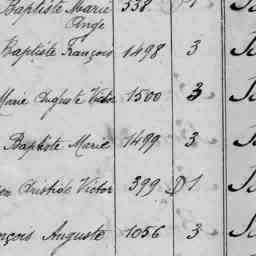 Baptiste Marie 338 D 1
Ange
Baptiste François 1498 3
Marie Auguste Victor 1500 3
Baptiste Marie 1499 3
Aristide Victor 399 D 1
nçois Auguste 1056 3